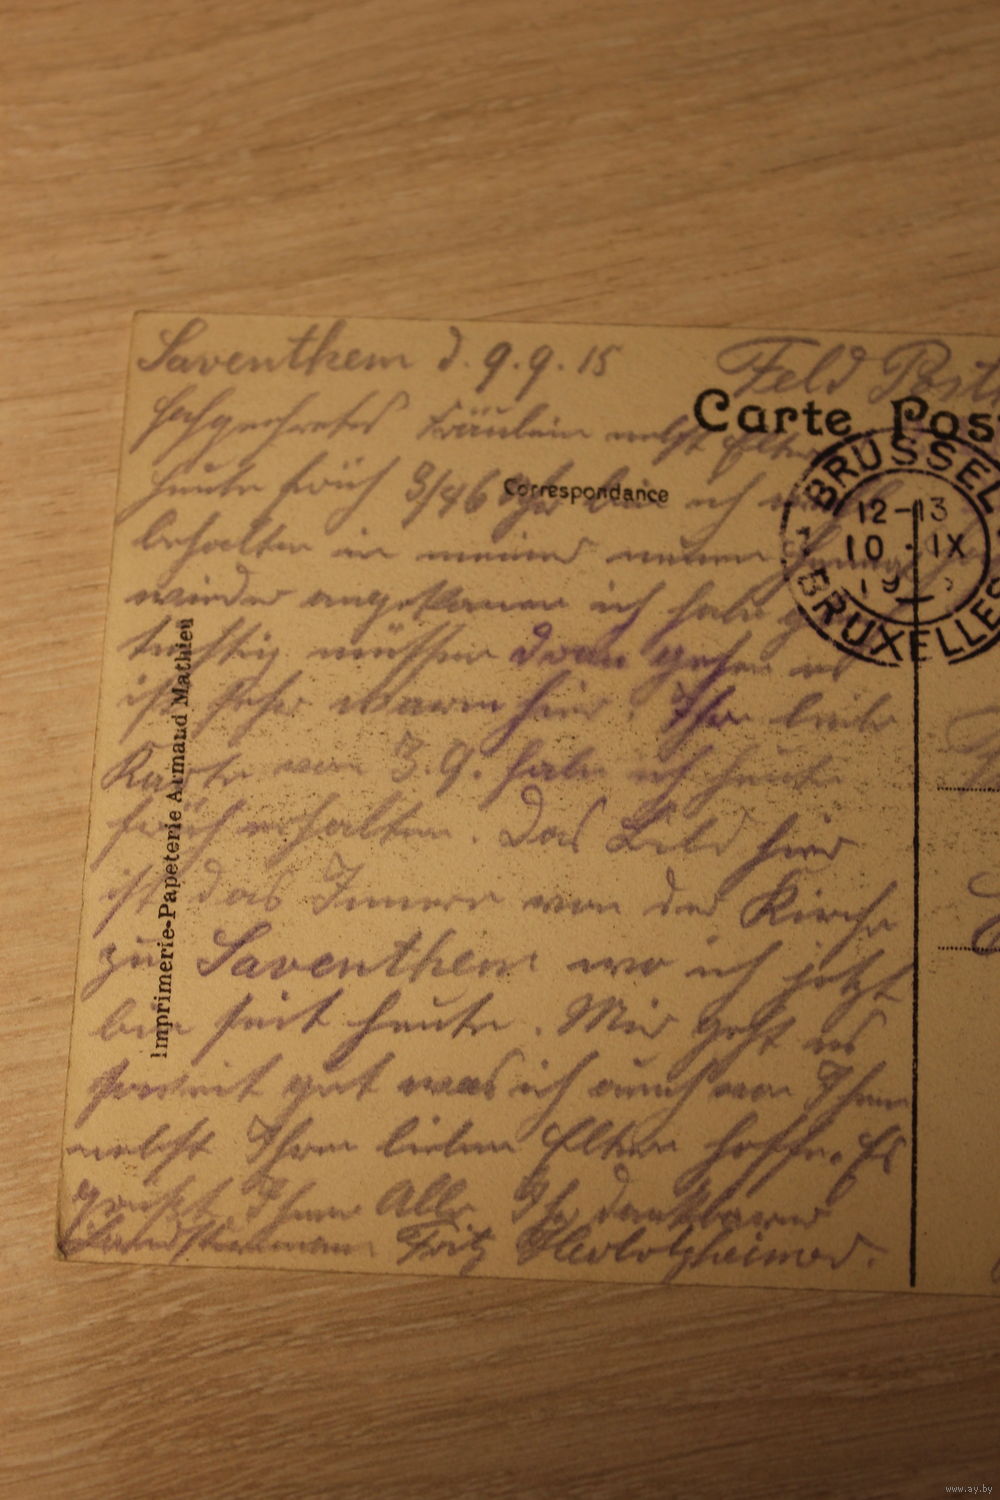 Saventhem d. 9.9.15
Feld Post
Carte Pos
Hochgeehrtes Fräulein nebst Eltern
BRUSSEL
12-13
10 IX
BRUXELLES
Correspondance
Heute früh 3/4 6 Uhr bin ich
behalten in meiner neuen
wieder angekommen ich habe
tüchtig müssen dran gehen es
ist sehr warm hier. Ihre liebe
Karte vom 3.9. habe ich heute
früh erhalten. Das Bild hier
ist das Innere von der Kirche
zu Saventhem wo ich jetzt
bin seit heute. Mir geht es
soweit gut was ich auch von Ihnen
nebst Ihren lieben Eltern hoffe. Es
grüßt Ihnen Alle Ihr dankbarer
Landsturmmann Fritz
Imprimerie-Papeterie Armand Mathieu
www.ay.by